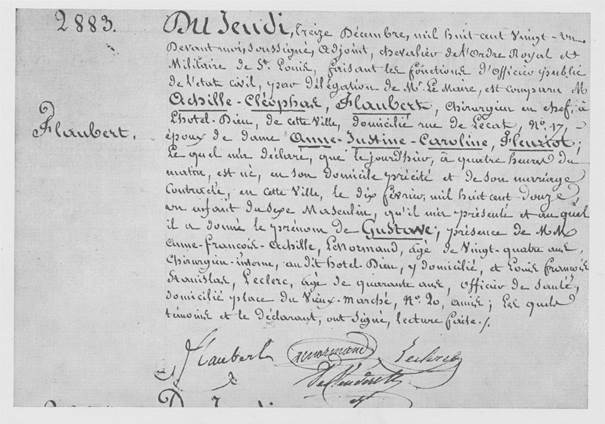 2883.
Flaubert.
Du Jeudi, treize Décembre, mil huit cent vingt-un
Devant moi, soussigné, Adjoint, chevalier de l'Ordre Royal et
Militaire de St. Louis, faisant les fonctions d'Officier public
de l'état civil, par délégation de Mr. le Maire, est comparu M
Achille-Cléophas, Flaubert, Chirurgien en chef, à
l'hotel-Dieu, de cette Ville, domicilié rue de Lecat, No. 17,
époux de dame Anne-Justine-Caroline, Fleuriot;
Le quel m'a déclaré, que le jour d'hier, à quatre heures du
matin, est né, en son domicile précité et de son mariage
Contracté, en cette Ville, le dix février, mil huit cent douze
un enfant du sexe Masculin, qu'il m'a présenté et au quel
il a donné le prénom de Gustave; présence de MM
Anne-François-Achille, Lenormand, âgé de Vingt-quatre ans,
Chirurgien-interne, au dit hotel-Dieu, y domicilié, et Louis François
Stanislas, Leclerc, âgé de quarante ans, Officier de santé,
domicilié place du Vieux-Marché, No. 20, amis; Les quels
témoins et le déclarant, ont signé, lecture faite./.
Flaubert Lenormand Leclerc
Du Jeudi